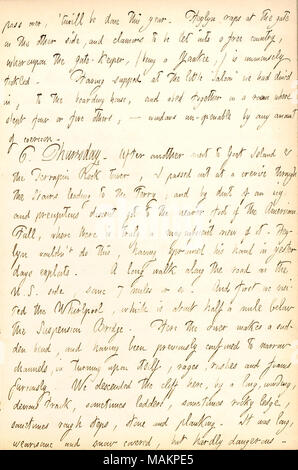 pass over, 'twill be done this year. Haylyn raps at the gate
on the other side, and clamors to be let into a free country,
whereupon the gate-keeper, (being a Yankee,) is immensely
tickled. Having supped at the little "saloon" we had dined
in, to the boarding house, and abed together in a room where
slept four or five others, — windows un-openable by any amount
of exertion.
6. Thursday. After another visit to Goat Island &
the Terrapin Rock tower I passed out at a crevice through
the stairs leading to the Ferry, and by dint of an icy
and precipitous descent got to the nearer foot of the American
Fall, where there a truly magnificent view of it. Hay-
lyn wouldn't do this, having sprained his hand in yester-
days exploits. A long walk along the road on the
U.S. side, some 7 miles or so. And first we visi-
ted the Whirlpool, which is about half a mile below
the Suspension Bridge. Here the river makes a sud-
den bend, and having been previously confined to narrow
channels, is turning upon itself, rages, rushes and foams
furiously. We descended the cliff here, by a long, winding,
devious track, sometimes ladders, sometimes rocky ledge,
sometimes rough steps, stone and planking. It was long,
wearisome and snow covered, but hardly dangerous —
alamy
Image ID: MAKPE5
www.alamy.com